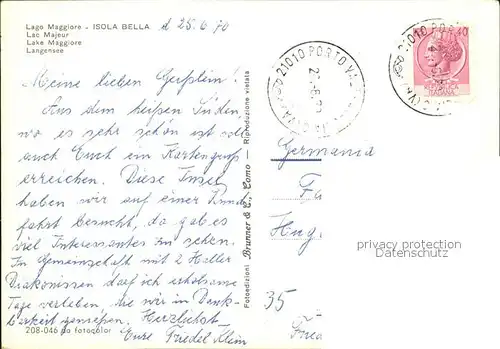 Lago Maggiore - ISOLA BELLA
Lac Majeur
Lake Maggiore
Langensee
d 25.6.70
Meine lieben
Aus dem heißen Süden,
wo es sehr schön ist soll
auch Euch ein Kartengruß
erreichen. Diese Insel
haben wir auf einer Rund
fahrt besucht, da gab es
viel Interessantes zu sehen.
In Gemeinschaft mit 2 Haller
Diakonissen darf ich erholsame
Tage verleben, die wir in Dank-
barkeit genießen. Herzlichst
Eure Friedel Klein
208-046 do fotocolor
Fotoedizioni Brunner & C., Como - Riproduzione vietata
21010 PORTO VAL
21010 PORTO VA
40
Germania
Hug
35
privacy protection
Datenschutz